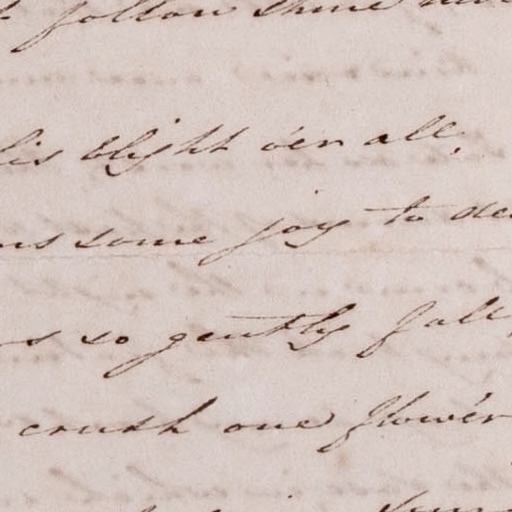 follow thine
his blight o'er all,
some joy to
so gently fall,
crush one flow'r